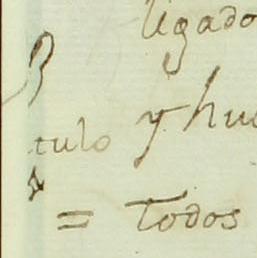 ligado
tulo y hu
= Todos